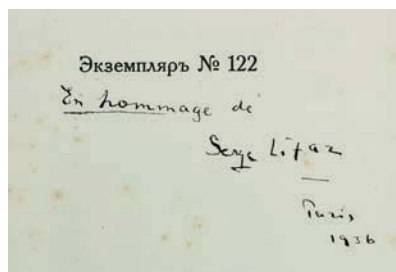 Экземпляръ № 122
En hommage de
Serge Lifar
Paris,
1936